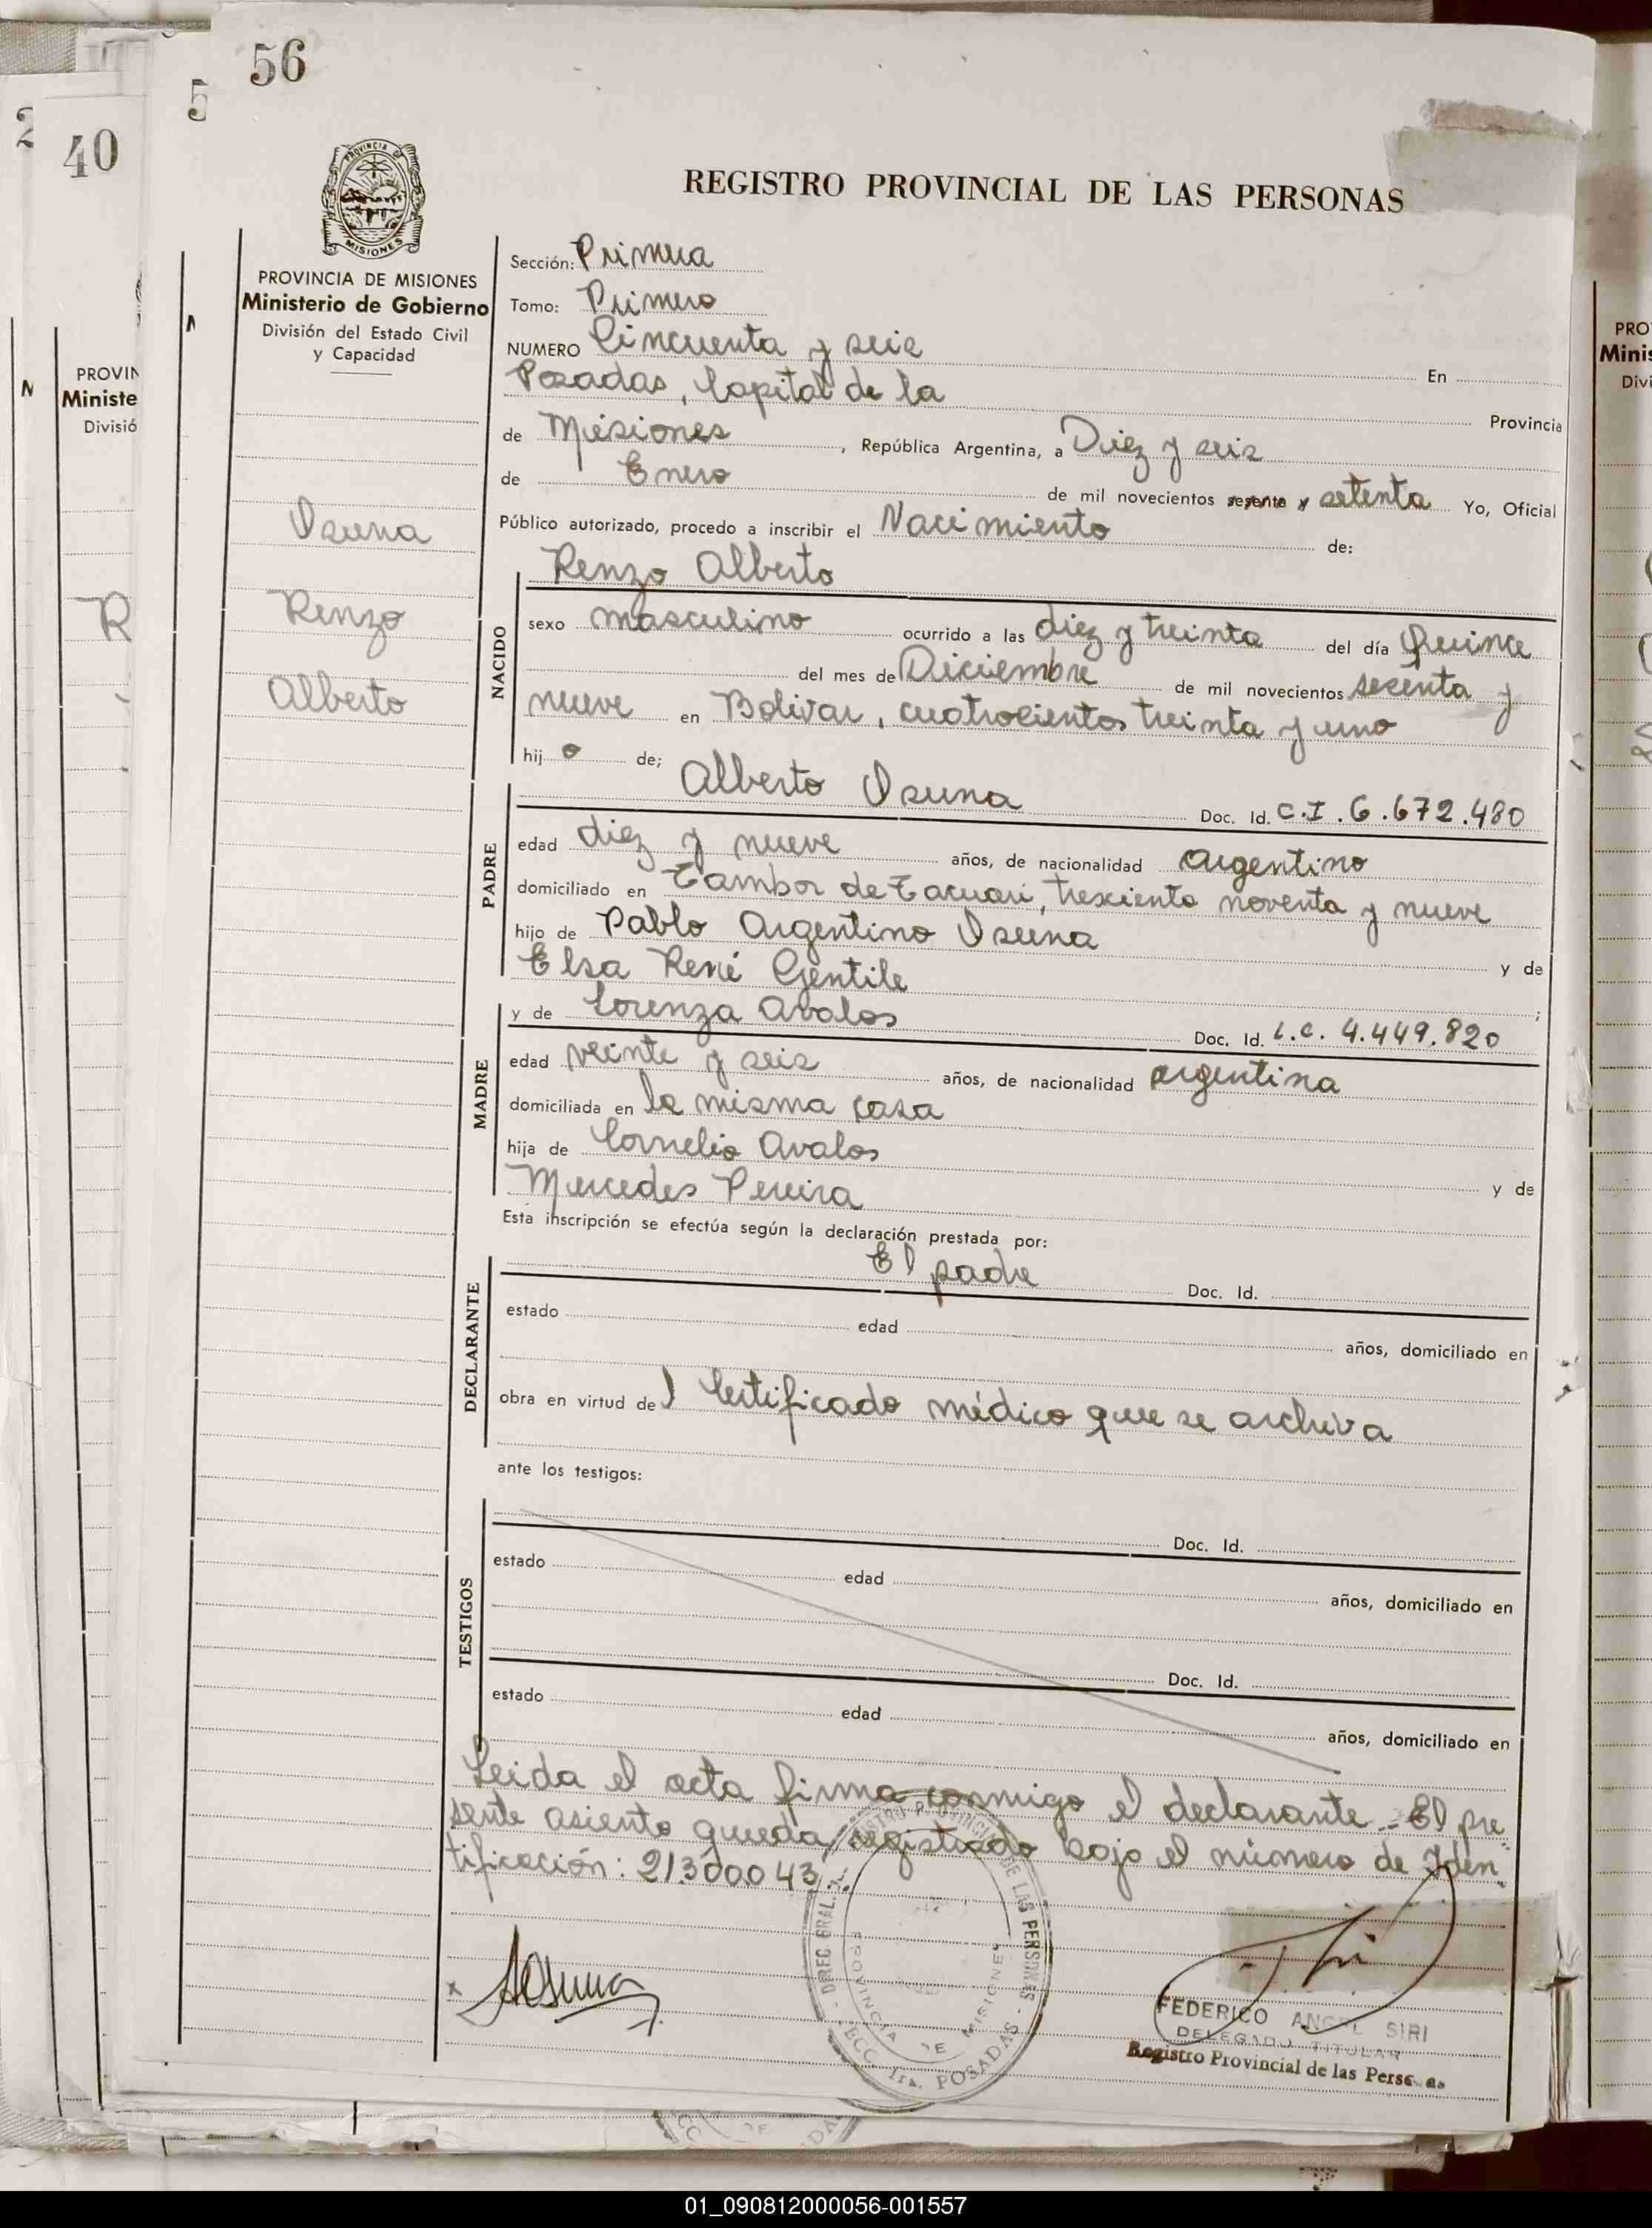 56
5
2
40
PROVINCIA DE
MISIONES
REGISTRO PROVINCIAL DE LAS PERSONAS
PROVINCIA DE MISIONES
Ministerio de Gobierno
División del Estado Civil
y Capacidad
Osuna
Renzo
Alberto
Sección: Primera
Tomo: Primero
NUMERO Cincuenta y seis En
Posadas, Capital de la Provincia
de Misiones, República Argentina, a Diez y seis
de Enero de mil novecientos sesenta y setenta Yo, Oficial
Público autorizado, procedo a inscribir el Nacimiento de:
Renzo Alberto
NACIDO
sexo masculino ocurrido a las diez y treinta del día Quince
del mes de Diciembre de mil novecientos sesenta y
nueve en Bolivar, cuatrocientos treinta y uno
hijo de;
PADRE
Alberto Osuna Doc. Id. C.I. 6.672.480
edad diez y nueve años, de nacionalidad argentino
domiciliado en Tambor de Tacuari, trescientos noventa y nueve
hijo de Pablo Argentino Osuna y de
Elsa René Gentile ;
MADRE
y de Lorenza Avalos Doc. Id. L.C. 4.449.820
edad veinte y seis años, de nacionalidad argentina
domiciliada en la misma casa
hija de Cornelio Avalos y de
Mercedes Pereira
Esta inscripción se efectúa según la declaración prestada por:
DECLARANTE
El padre Doc. Id.
estado edad años, domiciliado en
obra en virtud del Certificado médico que se archiva
ante los testigos:
TESTIGOS
Doc. Id.
estado edad años, domiciliado en
Doc. Id.
estado edad años, domiciliado en
Leida el acta firma conmigo el declarante.- El pre
sente asiento queda registrado bajo el número de Iden
tificación: 21.300.043
AOsuna
DIREC. GRAL. REGISTRO PROVINCIAL DE LAS PERSONAS
PROVINCIA DE MISIONES
SECC. 1ra. POSADAS
FEDERICO ANGEL SIRI
DELEGADO TITULAR
Registro Provincial de las Personas
PROVIN
Ministe
Divisió
R
PRO
Minis
Divi
01_090812000056-001557